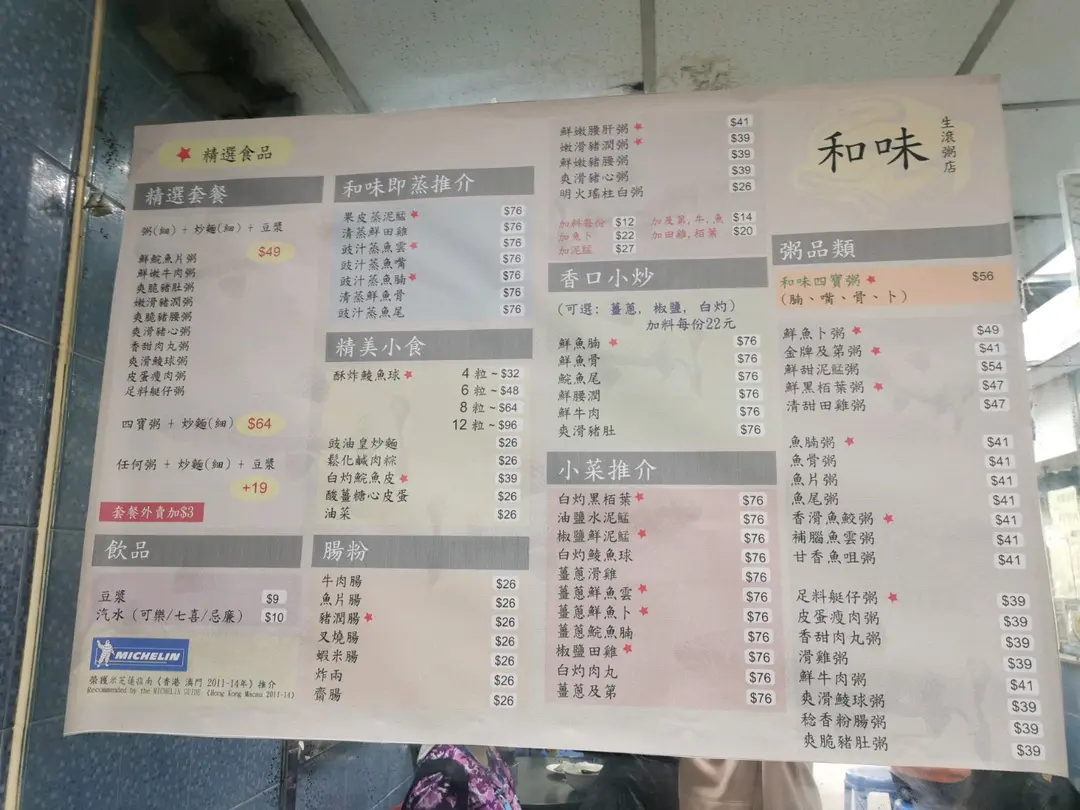 精選食品
精選套餐
粥(細) + 炒麵(細) + 豆漿
$49
鮮鯇魚片粥
鮮嫩牛肉粥
爽脆豬肚粥
嫩滑豬潤粥
爽脆豬腰粥
爽滑豬心粥
香甜肉丸粥
爽滑鯪球粥
皮蛋瘦肉粥
足料艇仔粥
四寶粥 + 炒麵(細) $64
任何粥 + 炒麵(細) + 豆漿
+19
套餐外賣加$3
飲品
豆漿 $9
汽水 (可樂/七喜/忌廉) $10
MICHELIN
榮獲米芝蓮指南《香港 澳門 2011-14年》推介
Recommended by the MICHELIN GUIDE (Hong Kong Macau 2011-14)
和味即蒸推介
果皮蒸泥鯭 $76
清蒸鮮田雞 $76
豉汁蒸魚雲 $76
豉汁蒸魚嘴 $76
豉汁蒸魚腩 $76
清蒸鮮魚骨 $76
豉汁蒸魚尾 $76
精美小食
酥炸鯪魚球 4 粒 ~ $32
6 粒 ~ $48
8 粒 ~ $64
12 粒 ~ $96
豉油皇炒麵 $26
鬆化鹹肉粽 $26
白灼鯇魚皮 $39
酸薑糖心皮蛋 $26
油菜 $26
腸粉
牛肉腸 $26
魚片腸 $26
豬潤腸 $26
叉燒腸 $26
蝦米腸 $26
炸兩 $26
齋腸 $26
鮮嫩腰肝粥 $41
嫩滑豬潤粥 $39
鮮嫩豬腰粥 $39
爽滑豬心粥 $39
明火瑤柱白粥 $26
加料每份 $12 加及第, 牛, 魚 $14
加魚卜 $22 加田雞, 栢葉 $20
加泥鯭 $27
香口小炒
(可選: 薑蔥, 椒鹽, 白灼)
加料每份22元
鮮魚腩 $76
鮮魚骨 $76
鯇魚尾 $76
鮮腰潤 $76
鮮牛肉 $76
爽滑豬肚 $76
小菜推介
白灼黑栢葉 $76
油鹽水泥鯭 $76
椒鹽鮮泥鯭 $76
白灼鯪魚球 $76
薑蔥滑雞 $76
薑蔥鮮魚雲 $76
薑蔥鮮魚卜 $76
薑蔥鯇魚腩 $76
椒鹽田雞 $76
白灼肉丸 $76
薑蔥及第 $76
和味
生滾粥店
粥品類
和味四寶粥 $56
(腩、嘴、骨、卜)
鮮魚卜粥 $49
金牌及第粥 $41
鮮甜泥鯭粥 $54
鮮黑栢葉粥 $47
清甜田雞粥 $47
魚腩粥 $41
魚骨粥 $41
魚片粥 $41
魚尾粥 $41
香滑魚鮫粥 $41
補腦魚雲粥 $41
甘香魚咀粥 $41
足料艇仔粥 $39
皮蛋瘦肉粥 $39
香甜肉丸粥 $39
滑雞粥 $39
鮮牛肉粥 $41
爽滑鯪球粥 $39
稔香粉腸粥 $39
爽脆豬肚粥 $39